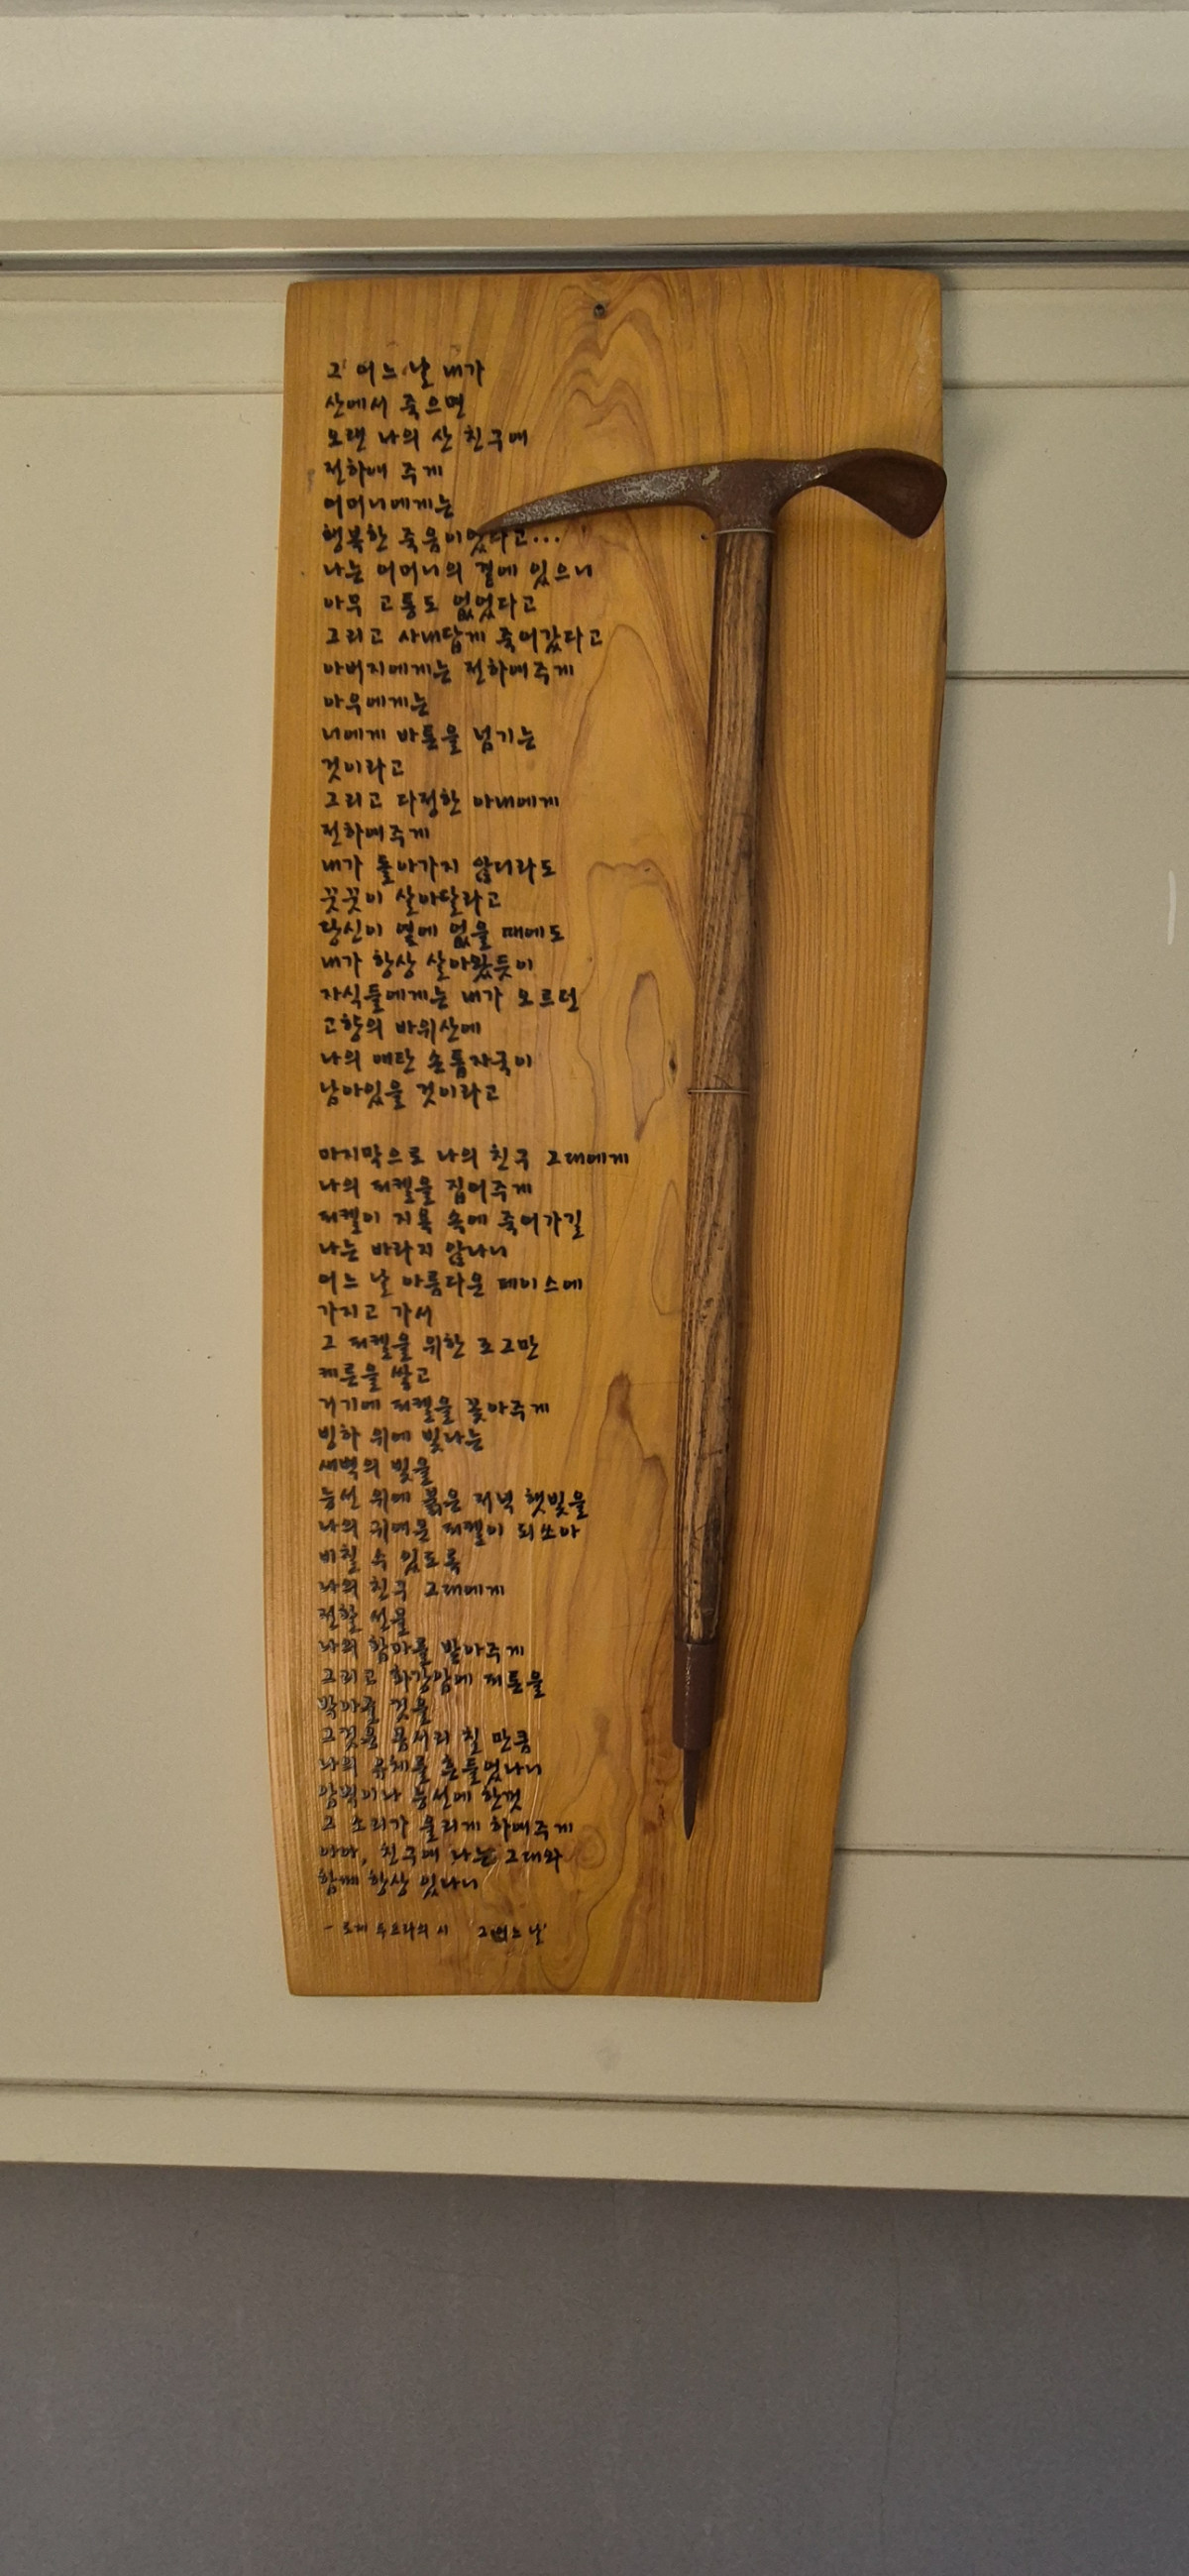 그 어느 날 내가
산에서 죽으면
오랜 나의 산 친구여
전하여 주게
어머니에게는
행복한 죽음이었다고...
나는 어머니의 곁에 있으니
아무 고통도 없었다고
그리고 사내답게 죽어갔다고
아버지에게는 전하여주게
아우에게는
너에게 바톤을 넘기는
것이라고
그리고 다정한 아내에게
전하여주게
내가 돌아가지 않더라도
꿋꿋이 살아달라고
당신이 옆에 없을 때에도
내가 항상 살아왔듯이
자식들에게는 내가 오르던
고향의 바위산에
나의 애탄 손톱자국이
남아있을 것이라고
마지막으로 나의 친구 그대에게
나의 피켈을 집어주게
피켈이 치욕 속에 죽어가길
나는 바라지 않나니
어느 날 아름다운 페이스에
가지고 가서
그 피켈을 위한 조그만
케른을 쌓고
거기에 피켈을 꽂아주게
빙하 위에 빛나는
새벽의 빛을
능선 위에 붉은 저녁 햇빛을
나의 귀여운 피켈이 되쏘아
비칠 수 있도록
나의 친구 그대에게
전할 선물
나의 함마를 받아주게
그리고 화강암에 피톤을
박아줄 것을
그것은 몸서리 칠 만큼
나의 유체를 흔들었나니
암벽이나 능선에 한껏
그 소리가 울리게 하여주게
아아, 친구여 나는 그대와
함께 항상 있나니
- 로제 듀프라의 시 그 어느 날'